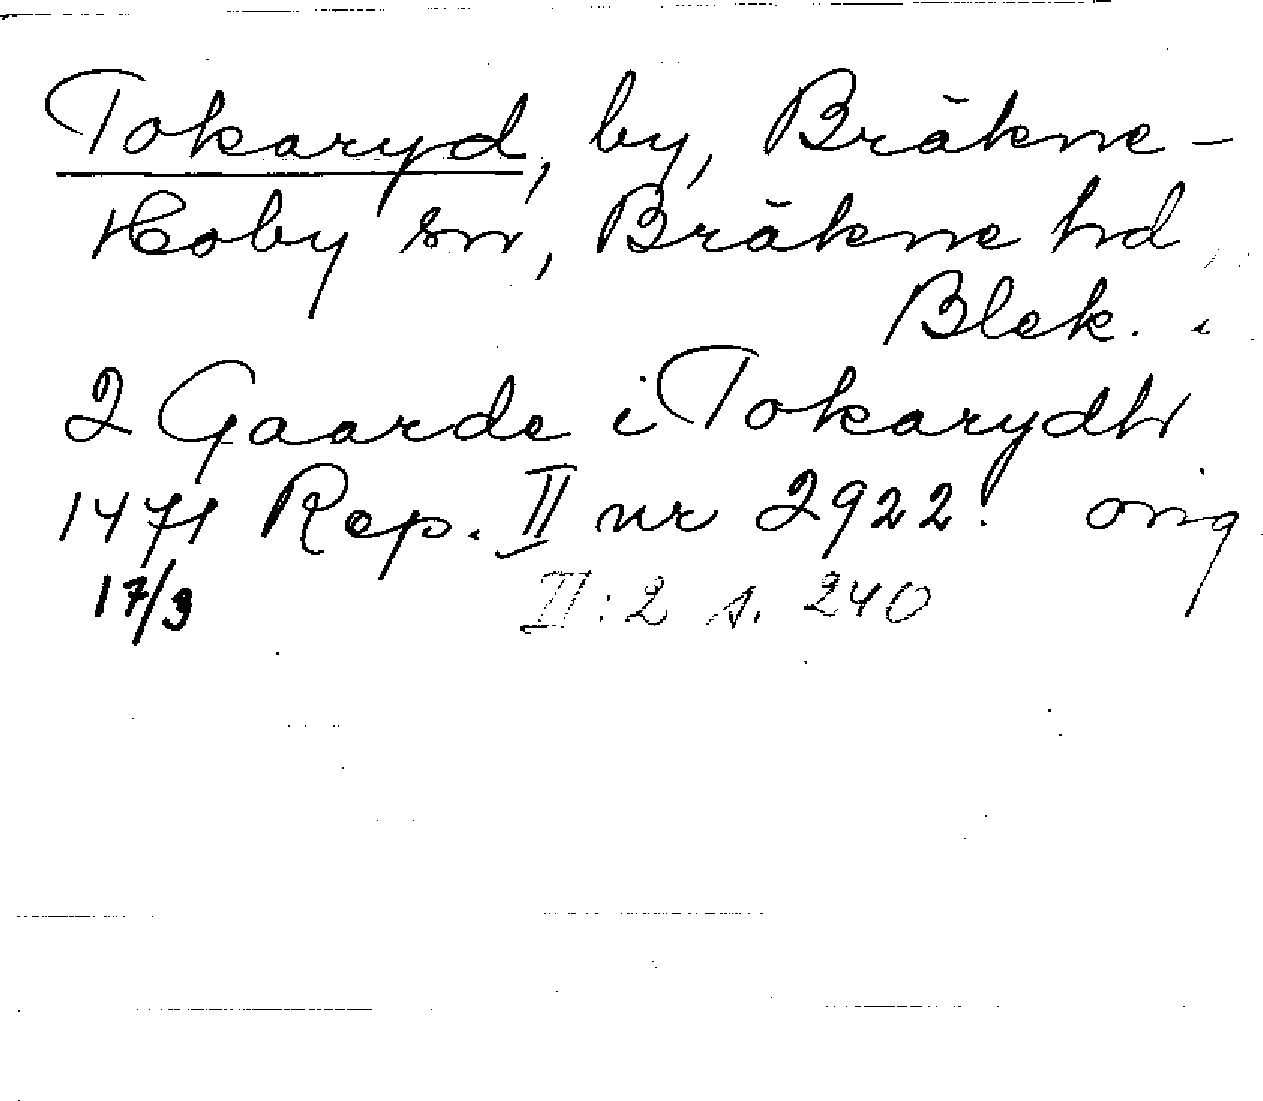 Tokaryd, by, Bräkne-
Hoby sn, Bräkne hd
Blek.
2 Gaarde i Tokarydh
1471 Rep. II nr 2922. orig
17/3 II:2 s. 240